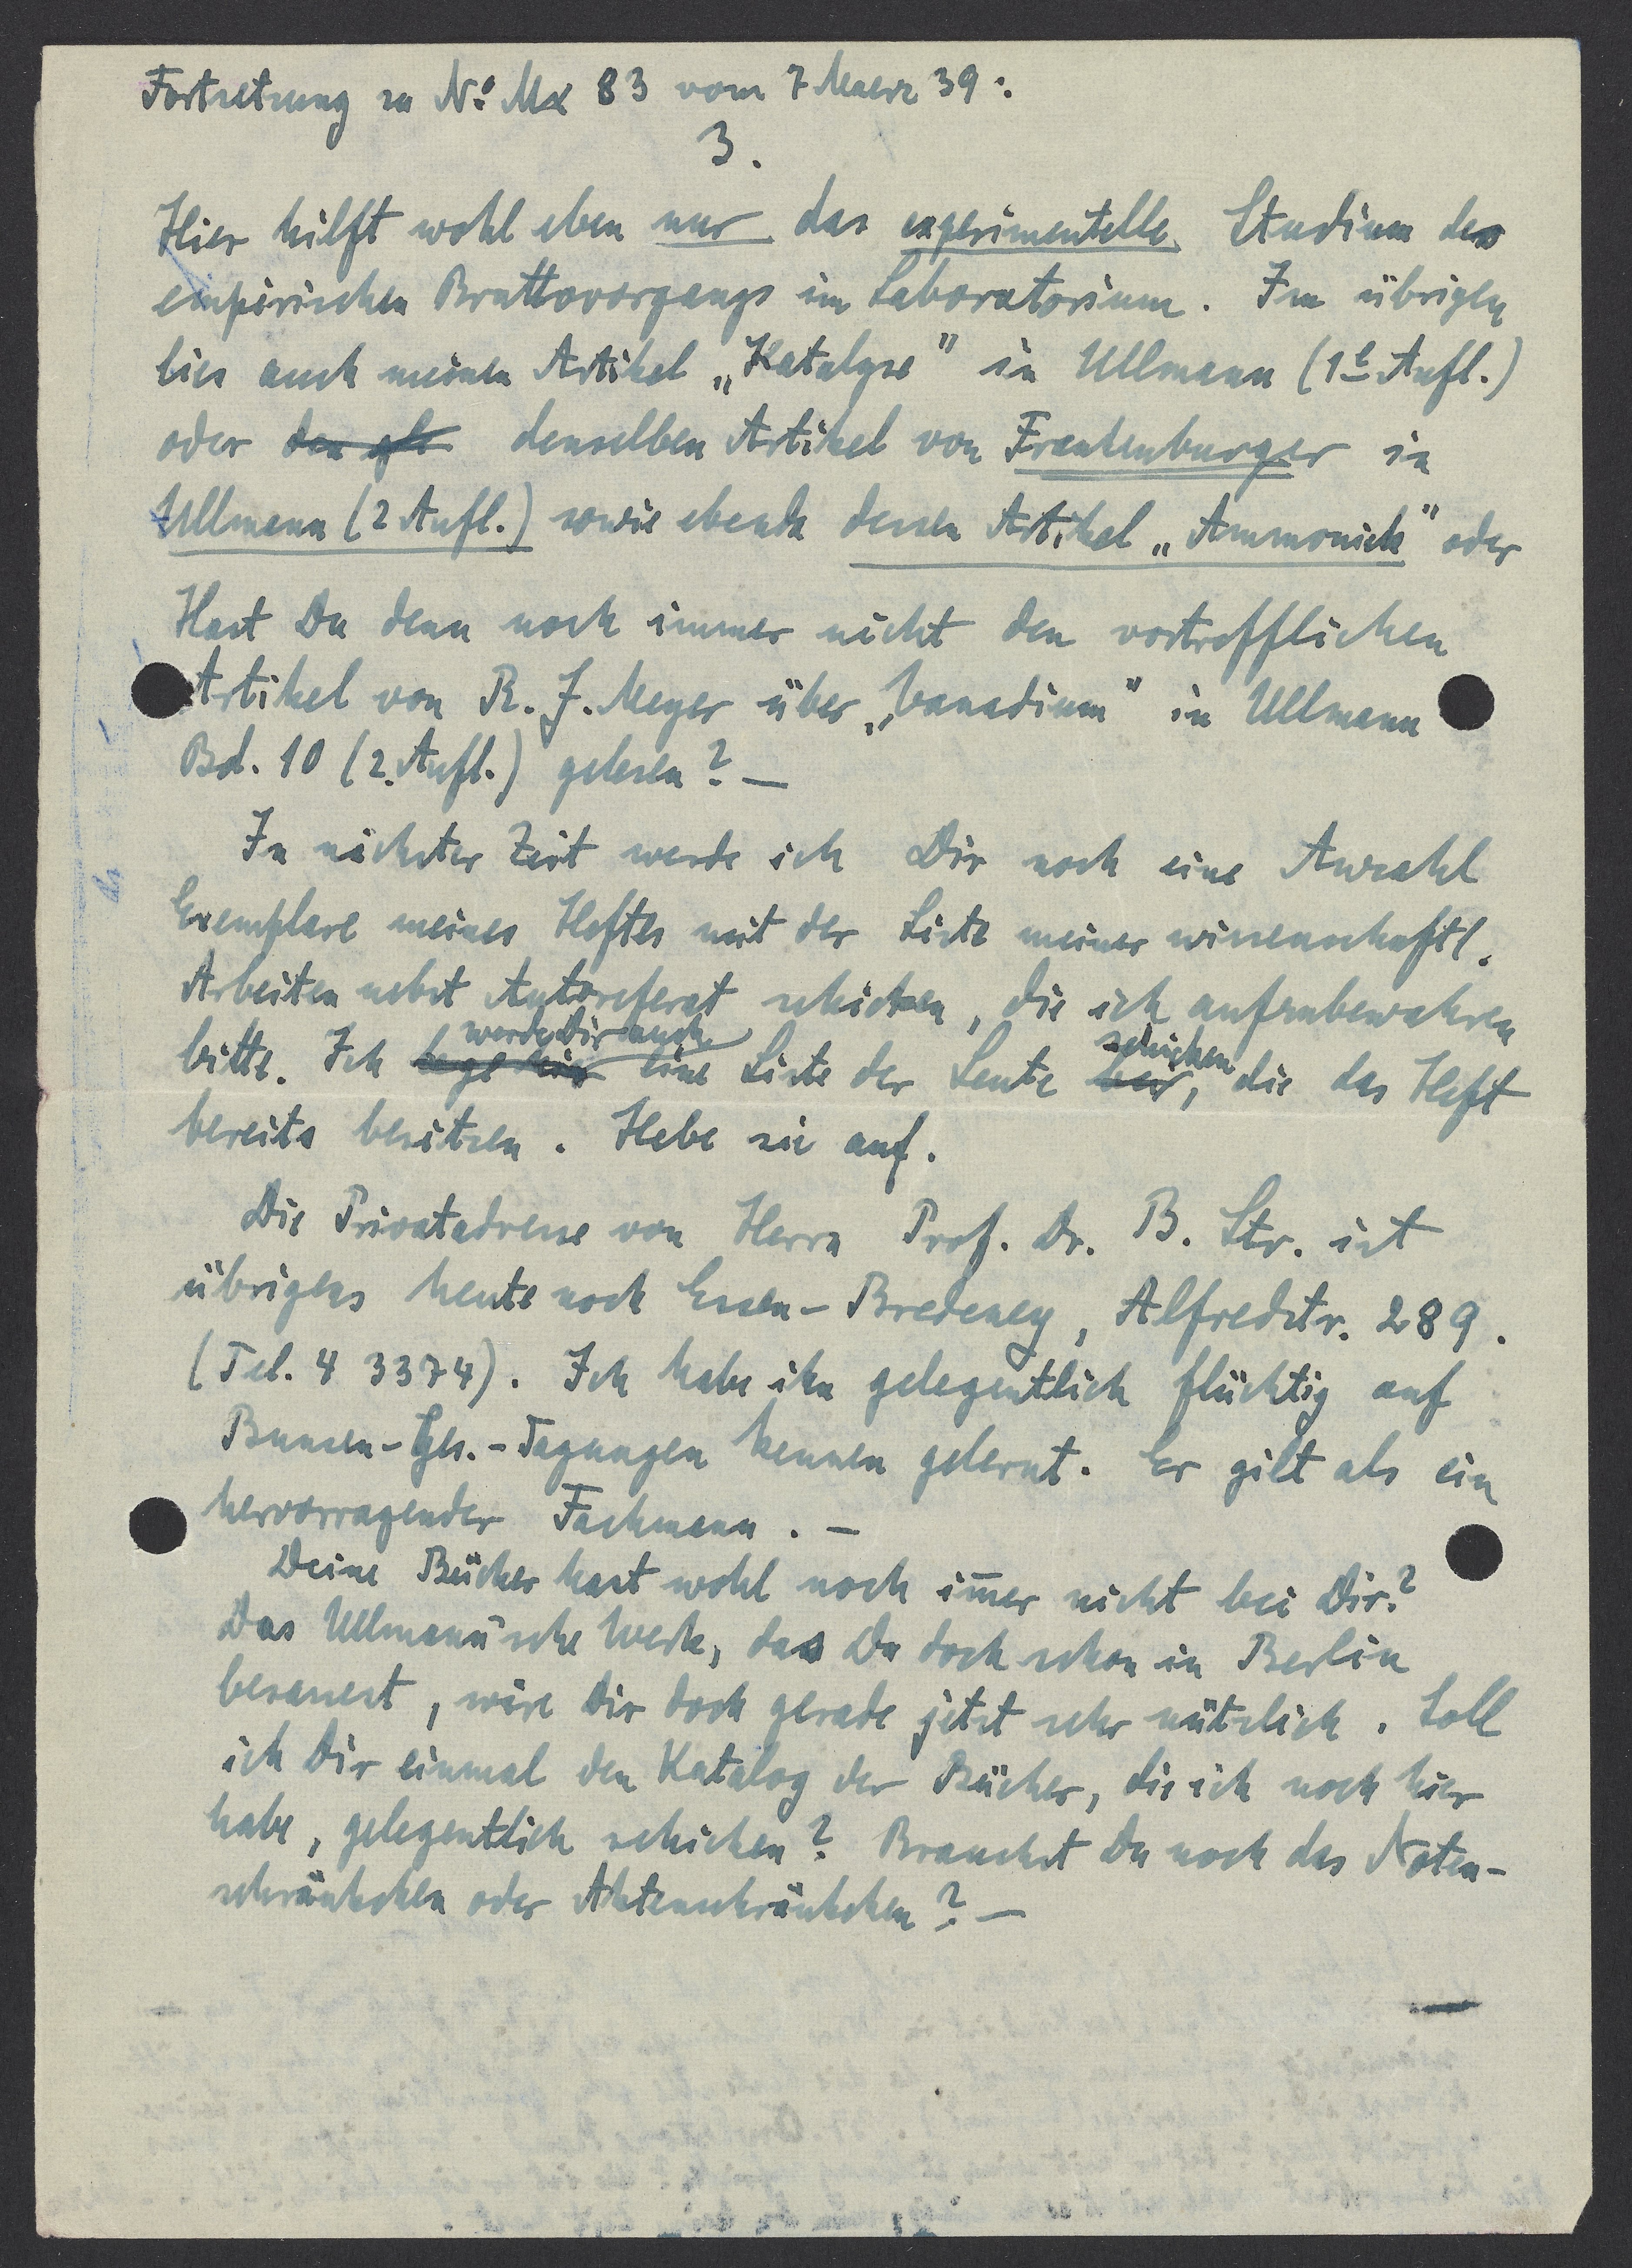 Fortsetzung zu No. Mx 83 vom 7 Maerz 39:
3.
Hier hilft wohl eben nur das experimentelle Studium des
empirischen Bruttovorgangs im Laboratorium. Im übrigen
lies auch meinen Artikel „Katalyse" in Ullmann (1t Aufl.)
oder denselben Artikel von Frankenburger in
Ullmann (2 Aufl.) sowie ebenda dessen Artikel „Ammoniak" oder
Hast Du denn noch immer nicht den vortrefflichen
Artikel von R. J. Meyer über „Vanadium" in Ullmann
Bd. 10 (2. Aufl.) gelesen? —
In nächster Zeit werde ich Dir noch eine Anzahl
Exemplare meines Heftes mit der Liste meiner wissenschaftl.
Arbeiten nebst Autoreferat schicken, die ich aufzubewahren
bitte. Ich werde Dir auch eine Liste der Leute schicken, die das Heft
bereits besitzen. Hebe sie auf.
Die Privatadresse von Herrn Prof. Dr. B. Str. ist
übrigens heute noch Essen-Bredeney, Alfredstr. 289.
(Tel. 4 3374). Ich habe ihn gelegentlich flüchtig auf
Bunsen-Ges.-Tagungen kennen gelernt. Er gilt als ein
hervorragender Fachmann. —
Deine Bücher hast wohl noch im̄er nicht bei Dir?
Das Ullmann'sche Werk, das Du doch schon in Berlin
besassest, wäre Dir doch gerade jetzt sehr nützlich. Soll
ich Dir einmal den Katalog der Bücher, die ich noch hier
habe, gelegentlich schicken? Brauchst Du noch das Noten-
schränkchen oder Aktenschränkchen? —